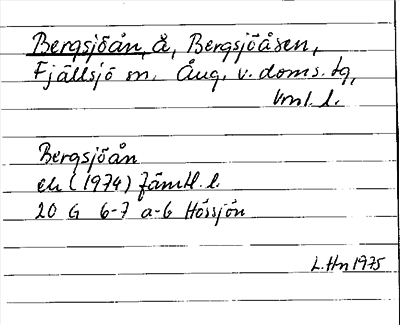 Bergsjöån, å, Bergsjöåsen,
Fjällsjö sn. Ång. v. doms. tg,
Vnl. l.
Bergsjöån
ek (1974) Jämtl. l.
20 G 6-7 a-b Hössjön
L. Hn 1975